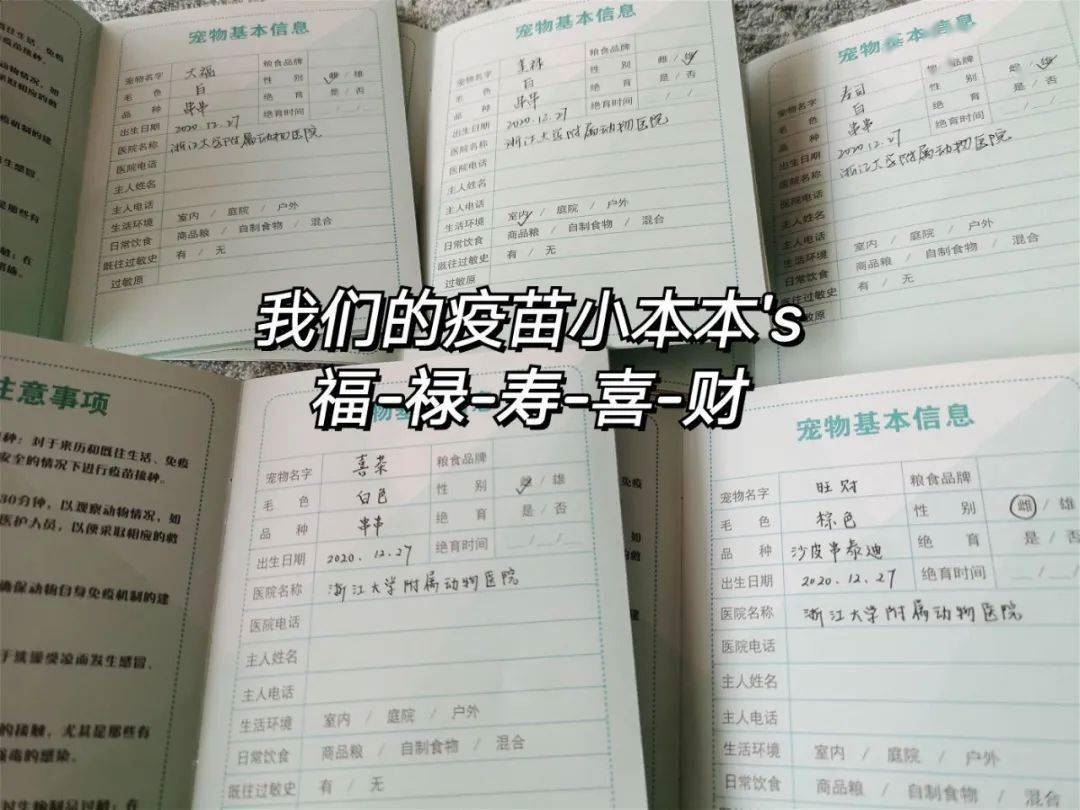 宠物基本信息
宠物名字 大福 粮食品牌
毛 色 白 性 别 雌/雄
品 种 串串 绝 育 是/否
出生日期 2020.12.27 绝育时间 / /
医院名称 浙江大学附属动物医院
医院电话
主人姓名
主人电话
生活环境 室内 / 庭院 / 户外
日常饮食 商品粮 / 自制食物 / 混合
既往过敏史 有 / 无
过敏原
宠物基本信息
宠物名字 粮食品牌
毛 色 白 性 别 雌/雄
品 种 串串 绝 育 是/否
出生日期 2020.12.27 绝育时间 / /
医院名称 浙江大学附属动物医院
医院电话
主人姓名
主人电话
生活环境 室内 / 庭院 / 户外
日常饮食 商品粮 / 自制食物 / 混合
既往过敏史 有 / 无
过敏原
宠物基本信息
宠物名字 寿司 品牌
毛 色 白 性 别 雌/雄
品 种 串串 绝 育 是/否
出生日期 2020.12.27 绝育时间 / /
医院名称 浙江大学附属动物医院
医院电话
主人姓名
主人电话
生活环境 室内 / 庭院 / 户外
日常饮食 商品粮 / 自制食物 / 混合
既往过敏史 有 / 无
过敏原
我们的疫苗小本本's
福-禄-寿-喜-财
注意事项
种：对于来历和既往生活、免疫
安全的情况下进行疫苗接种。
30分钟，以观察动物情况，如
医护人员，以便采取相应的救
确保动物自身免疫机制的建
的接触，尤其是那些有
病毒的感染。
物基 息
宠物名字 喜荣 粮食品牌
毛 色 白色 性 别 雌/雄
品 种 串串 绝 育 是/否
出生日期 2020.12.27 绝育时间 / /
医院名称 浙江大学附属动物医院
医院电话
主人姓名
主人电话
生活环境 室内 / 庭院 / 户外
日常饮食 商品粮 / 自制食物 / 混合
既往过敏史 有 / 无
宠物基本信息
宠物名字 旺财 粮食品牌
毛 色 棕色 性 别 雌/雄
品 种 沙皮串泰迪 绝 育 是/否
出生日期 2020.12.27 绝育时间 / /
医院名称 浙江大学附属动物医院
医院电话
主人姓名
主人电话
生活环境 室内 / 庭院 / 户外
日常饮食 商品粮 / 自制食物 / 混合
既往过敏史 有 / 无